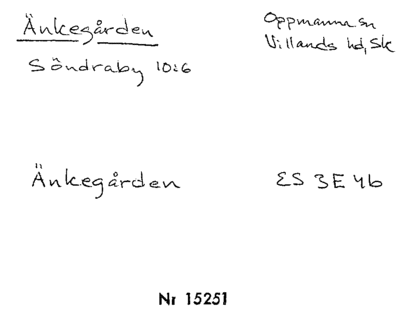 Änkegården
Oppmanna sn
Villands hd, Sk
Söndraby 10:6
Änkegården
ES 3E 4b
Nr 15251